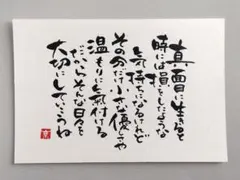 真面目に生きると
時には損をしたような
気持ちになるけれど
その分だけ小さな優しさや
温もりに気付ける
だからそんな日々を
大切にしていこうね